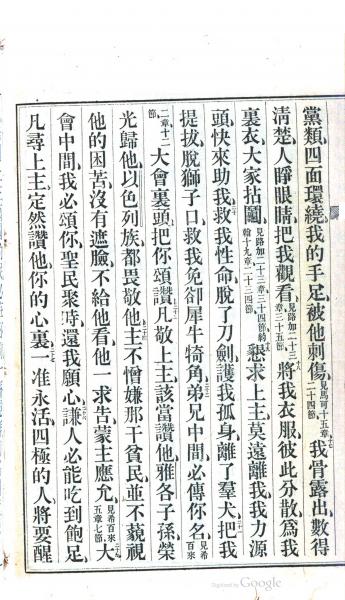 黨類四面環繞我的手足被他刺傷見馬可十五章二十四節我骨露出數得
清楚人睜眼睛把我觀看見路加二十三章三十五節將我衣服彼此分散爲我
裏衣大家拈鬮見路加二十三章三十四節約翰十九章二十三四節懇求上主莫遠離我我力源
頭快來助我救我性命脫了刀劍護我孤身離了羣犬把我
提拔脫獅子口救我免卻犀牛犄角弟兄中間必傳你名見希百來
二章十二節大會裏頭把你頌讚凡敬上主該當讚他雅各子孫榮
光歸他以色列族都畏敬他主不憎嫌那干貧民並不藐視
他的困苦沒有遮臉不給他看他一求告蒙主應允見希百來五章七節大
會中間我必頌你聖民聚時還我願心謙人必能吃到飽足
凡尋上主定然讚他你的心裏一准永活四極的人將要醒
Digitized by Google